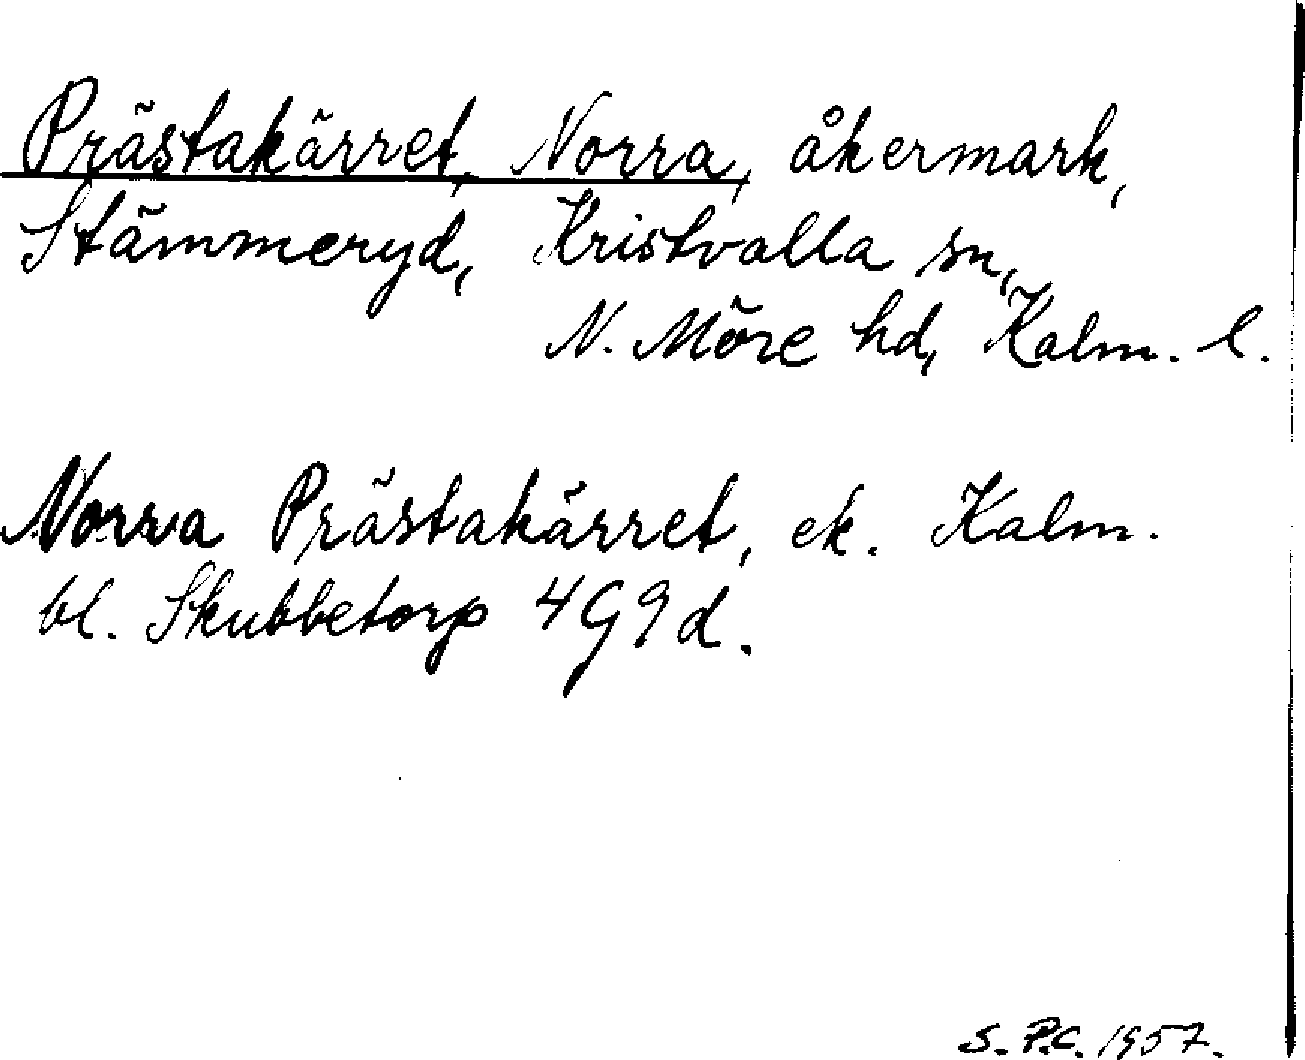 Prästakärret, Norra, åkermark,
Stämmeryd, Kristvalla sn,
N. Möre hd, Kalm. l.
Norra Prästakärret, ek. Kalm.
bl. Skubbetorp 4G9d.
S. P.C. 1957.